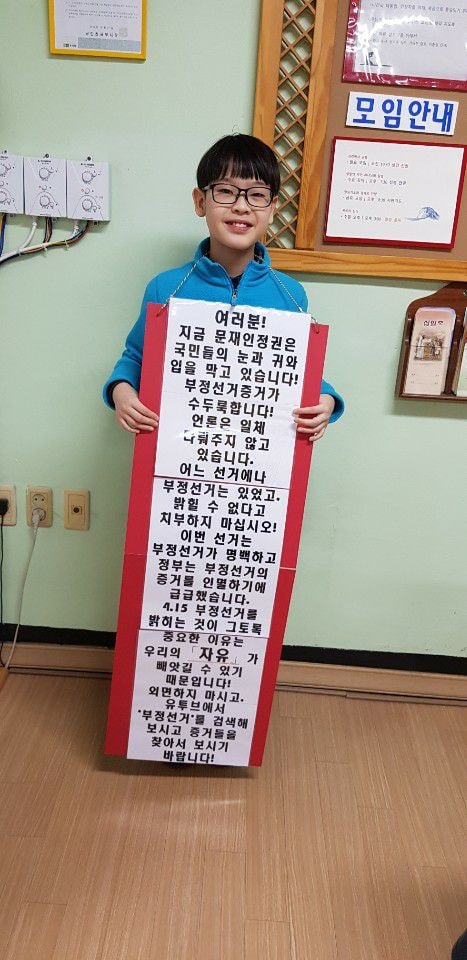 모임안내
여러분!
지금 문재인정권은
국민들의 눈과 귀와
입을 막고 있습니다!
부정선거증거가
수두룩합니다!
언론은 일체
다뤄주지 않고
있습니다.
어느 선거에나
부정선거는 있었고.
밝힐 수 없다고
치부하지 마십시오!
이번 선거는
부정선거가 명백하고
정부는 부정선거의
증거를 인멸하기에
급급했습니다.
4.15 부정선거를
밝히는 것이 그토록
중요한 이유는
우리의 「자유」가
빼앗길 수 있기
때문입니다!
외면하지 마시고.
유투브에서
"부정선거"를 검색해
보시고 증거들을
찾아서 보시기
바랍니다!